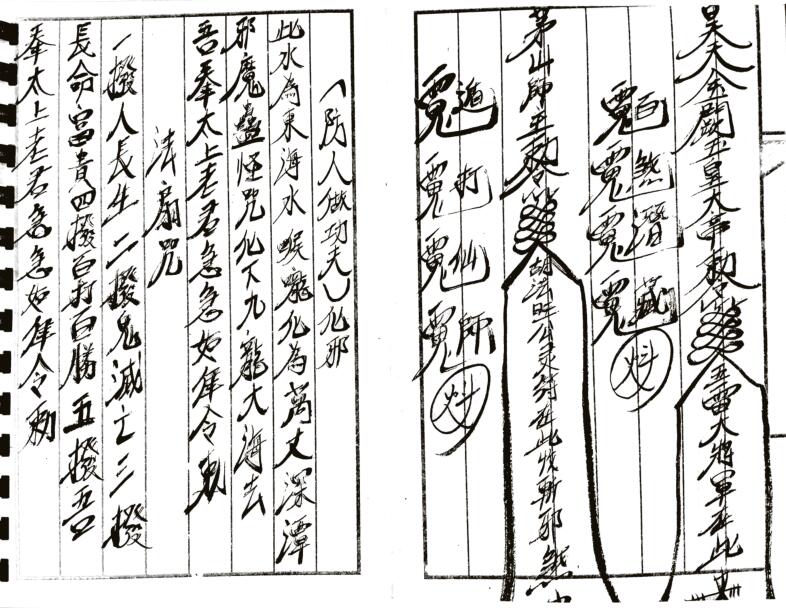 昊天金闕玉皇大帝勅令 五雷大將軍在此
百煞潛藏
茅山師主勅令 胡法旺公灵符在此收斬邪煞
遁打仙師
（防人做功夫）化邪
此水為東海水喉嚨化為萬丈深潭
邪魔蠱怪咒化下九龍大海去
吾奉太上老君急急如律令勅
法扇咒
一撥人長生二撥鬼滅亡三撥
長命富貴四撥百打百勝五撥吾
奉太上老君急急如律令勅